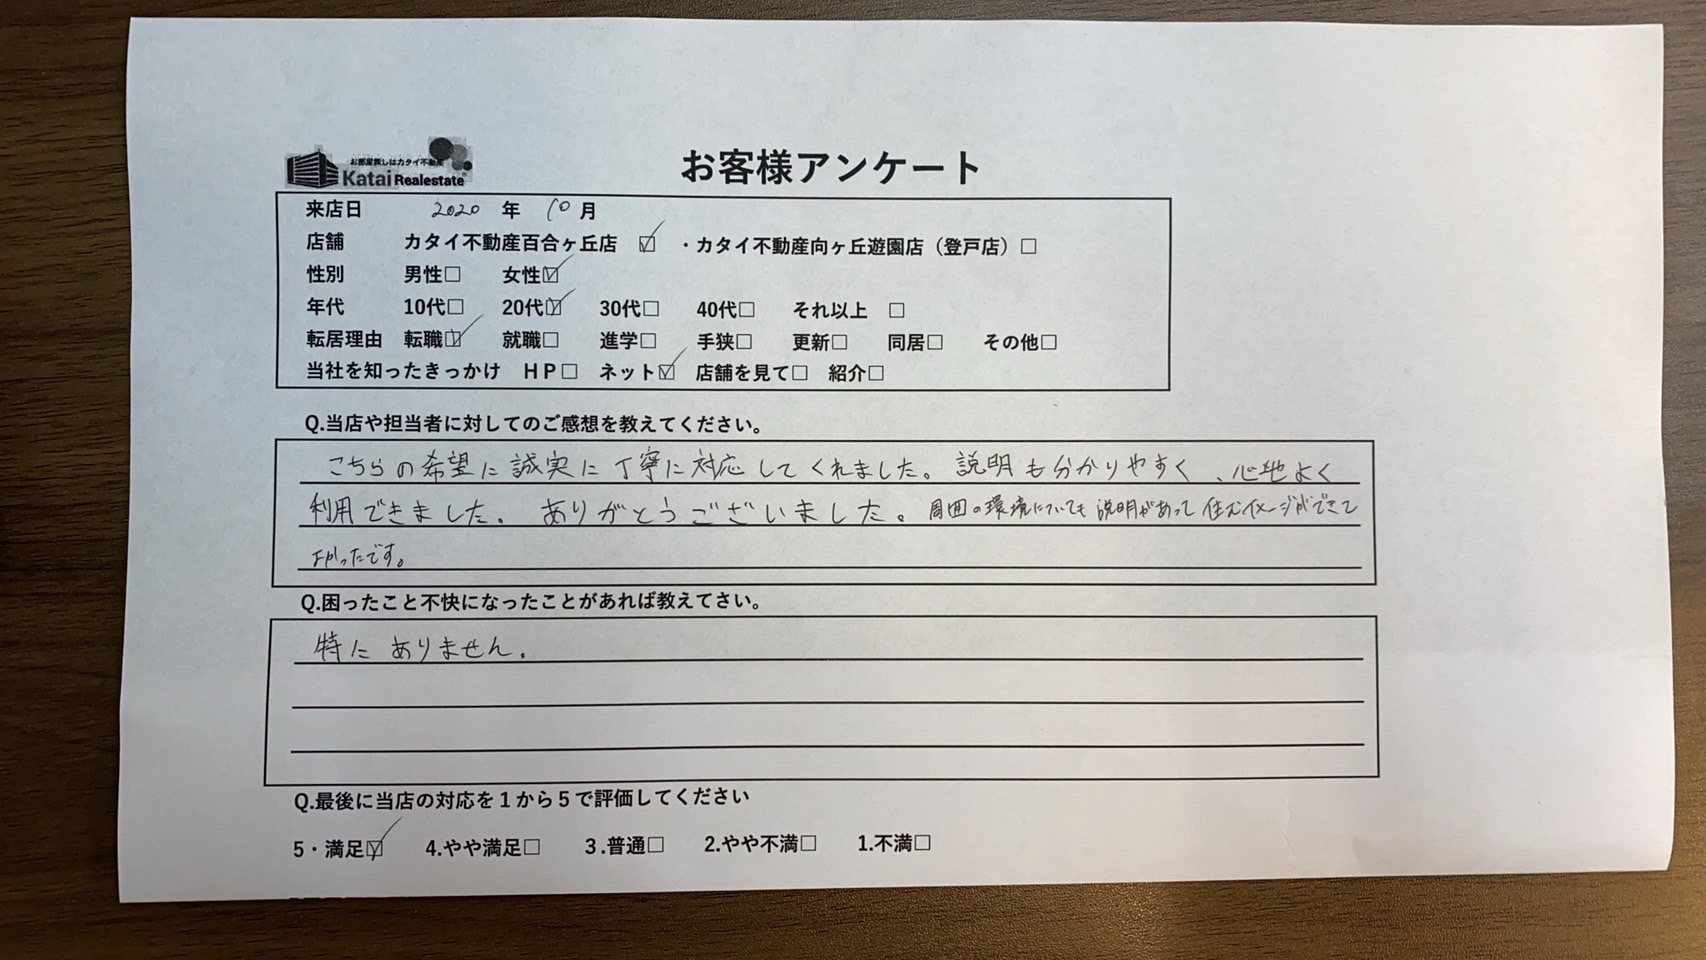 お部屋探しはカタイ不動産
Katai Realestate
お客様アンケート
来店日 2020 年 10 月
店舗 カタイ不動産百合ヶ丘店 ☑ ・カタイ不動産向ヶ丘遊園店（登戸店）□
性別 男性□ 女性☑
年代 10代□ 20代☑ 30代□ 40代□ それ以上 □
転居理由 転職☑ 就職□ 進学□ 手狭□ 更新□ 同居□ その他□
当社を知ったきっかけ ＨＰ□ ネット☑ 店舗を見て□ 紹介□
Q.当店や担当者に対してのご感想を教えてください。
こちらの希望に誠実に丁寧に対応してくれました。説明も分かりやすく、心地よく
利用できました。ありがとうございました。周囲の環境についても説明があって住むイメージができて
よかったです。
Q.困ったこと不快になったことがあれば教えてさい。
特にありません。
Q.最後に当店の対応を１から５で評価してください
5・満足☑ 4.やや満足□ ３.普通□ 2.やや不満□ 1.不満□